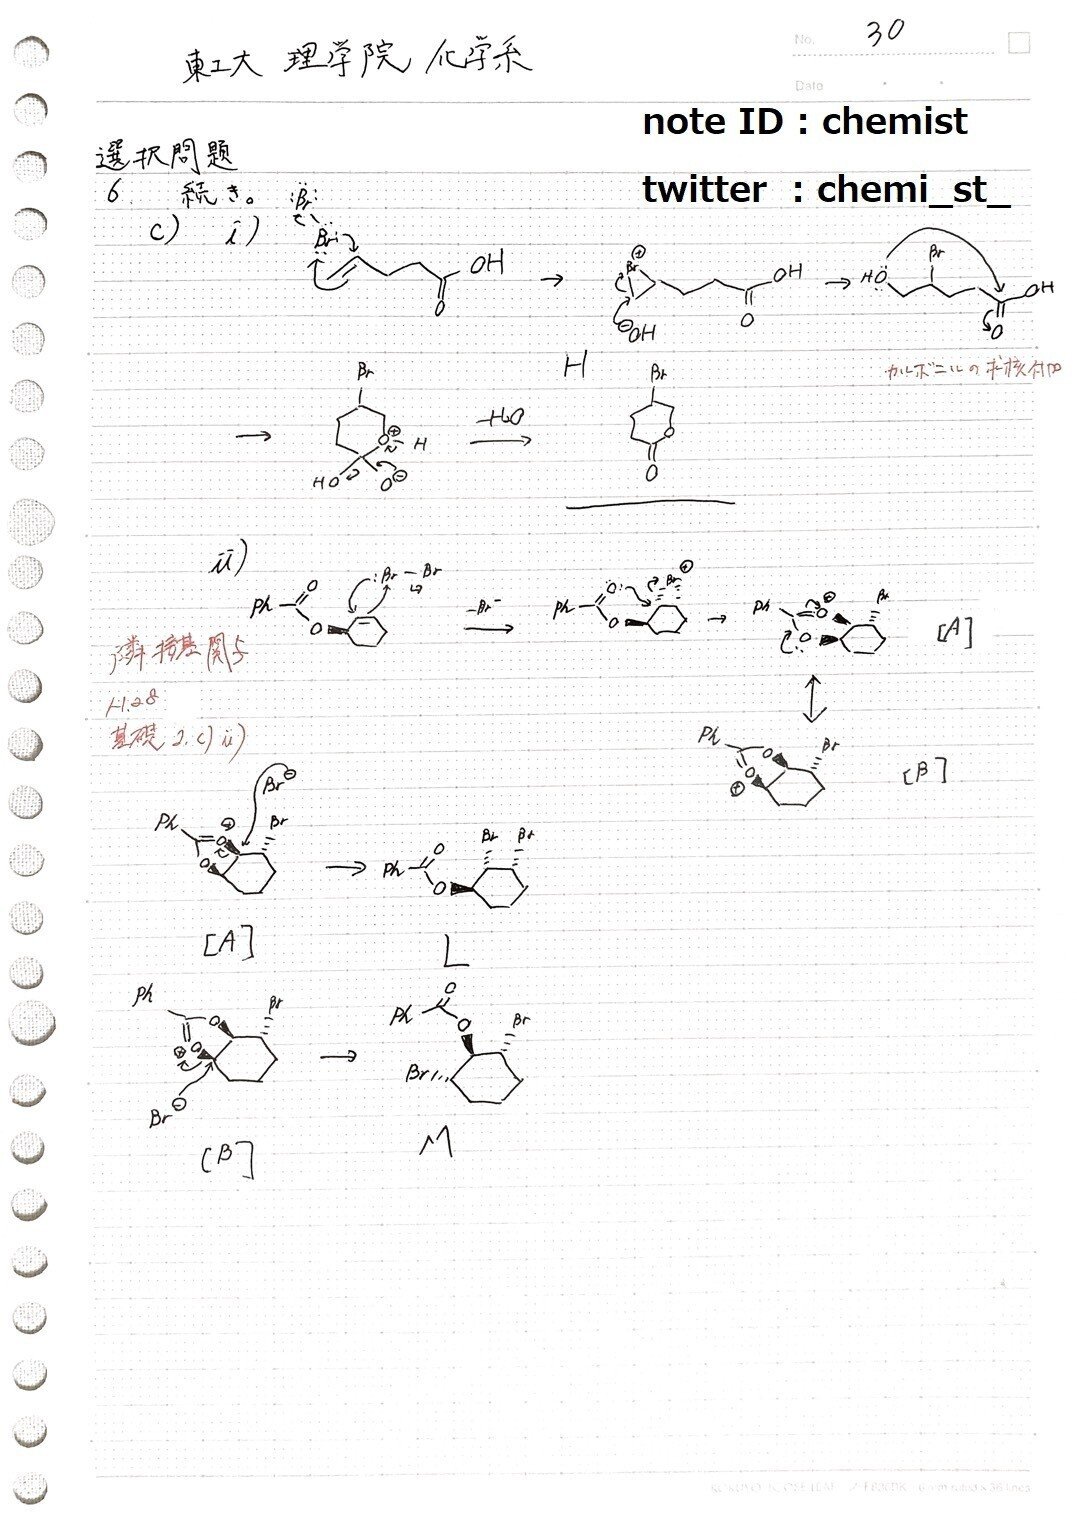 No. 30
東工大 理学院 化学系
Date
note ID : chemist
選択問題
twitter : chemi_st_
6. 続き。
c) i)
Br
Br
OH
O
Br
OH
O
OH
HO
Br
OH
O
カルボニルの求核付加
Br
O
H
HO
O
-H2O
H
Br
O
O
ii)
Ph
O
O
Br - Br
-Br-
Ph
O
O
Br
Ph
O
O
Br
[A]
隣接基関与
H.28
基礎 2. c) ii)
Ph
O
O
Br
[B]
Ph
O
O
Br
Br
[A]
Ph
O
O
Br
Br
L
Ph
O
O
Br
Br
[B]
Ph
O
O
Br
Br
M